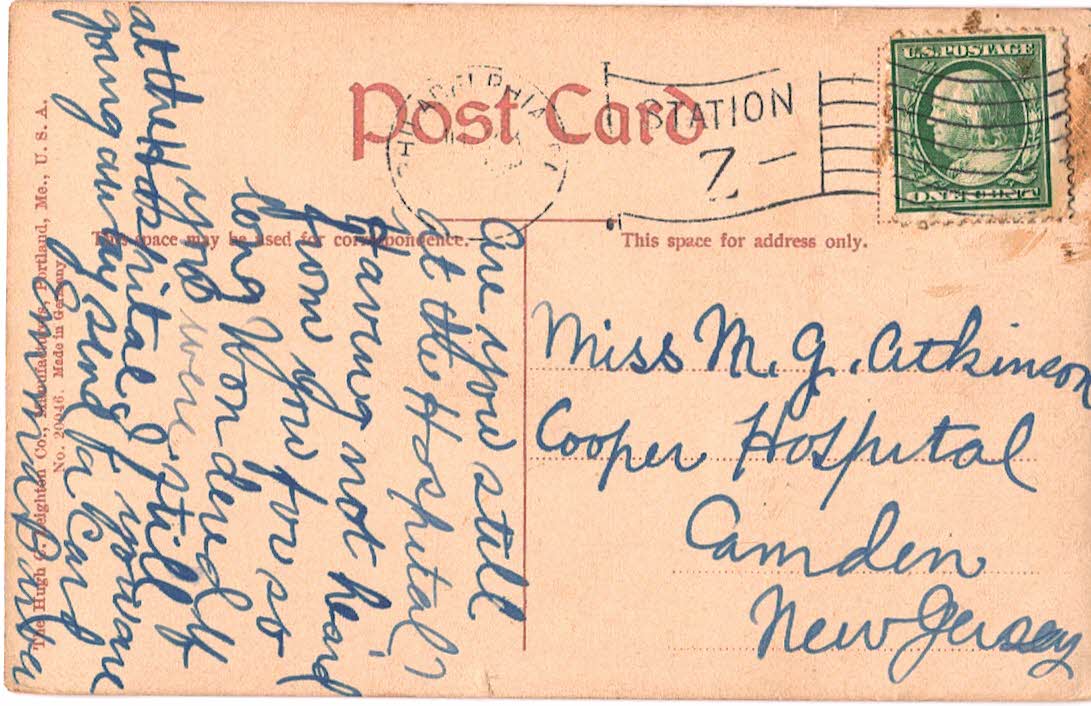 Post Card
PHILADELPHIA
STATION
Z -
U.S. POSTAGE
ONE CENT
This space may be used for correspondence.
This space for address only.
Miss M. G. Atkinson
Cooper Hospital
Camden
New Jersey
Are you still
at the Hospital?
Having not heard
from you for so
long Wondered if
you were still
at the Hospital if you are
going away send a card
The Hugh C. Leighton Co., Manufacturers, Portland, Me., U. S. A.
No. 20046. Made in Germany